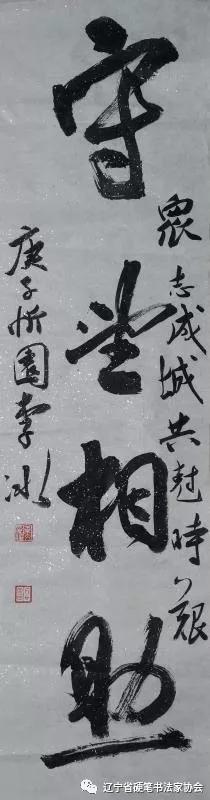 眾志成城共尅時艱
守望相助
庚子忻園李冰
辽宁省硬笔书法家协会